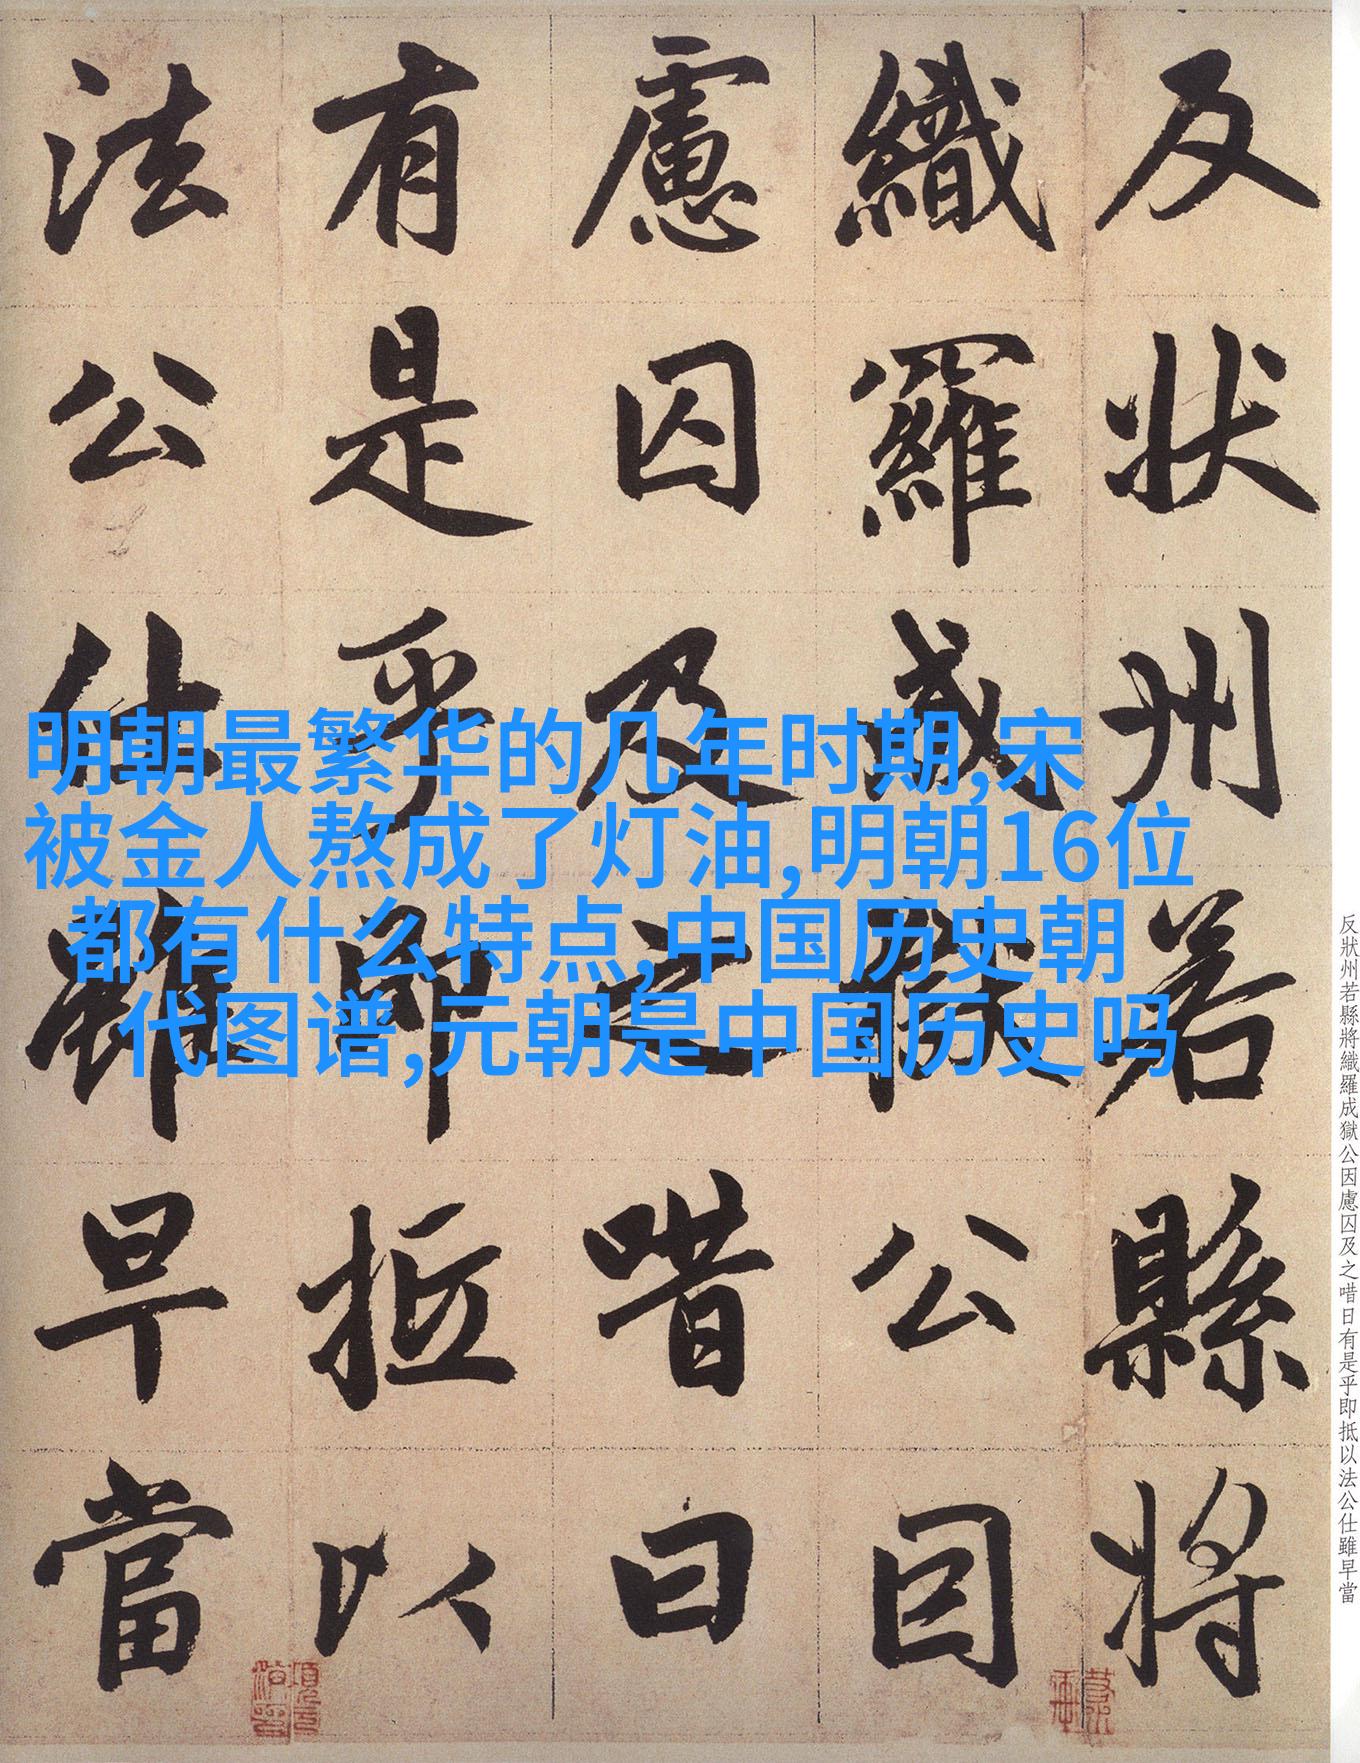 反状州若縣将
織羅成獄公因
慮囚及之唶曰
有是乎即抵以
法公仕雖早當
明朝最繁华的几年时期,宋
被金人熬成了灯油,明朝16位
都有什么特点,中国历史朝
代图谱,元朝是中国历史吗
反狀州若縣將織羅成獄公因慮囚及之唶日有是乎即抵以法公仕雖早當